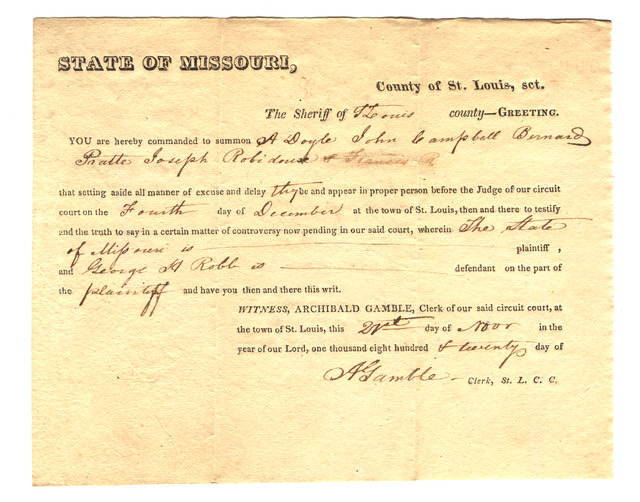 STATE OF MISSOURI,
County of St. Louis, sct.
The Sheriff of St Louis county—GREETING.
YOU are hereby commanded to summon A Doyle John Campbell Bernard
Pratte Joseph Robidoux & Francis R
that setting aside all manner of excuse and delay they be and appear in proper person before the Judge of our circuit
court on the Fourth day of December at the town of St. Louis, then and there to testify
and the truth to say in a certain matter of controversy now pending in our said court, wherein The State
of Missouri is plaintiff ,
and George H Robb is defendant on the part of
the plaintiff and have you then and there this writ.
WITNESS, ARCHIBALD GAMBLE, Clerk of our said circuit court, at
the town of St. Louis, this 21st day of Novr in the
year of our Lord, one thousand eight hundred & twenty day of
A Gamble Clerk, St. L. C. C.